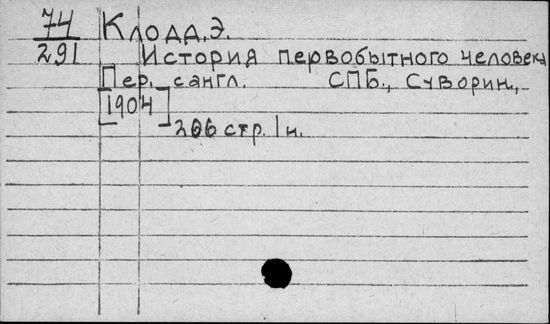 74 Клодд, Э.
291 История первобытного человека
Пер. сангл. СПБ., Суворин.,
[1904]
206 стр. 1н.